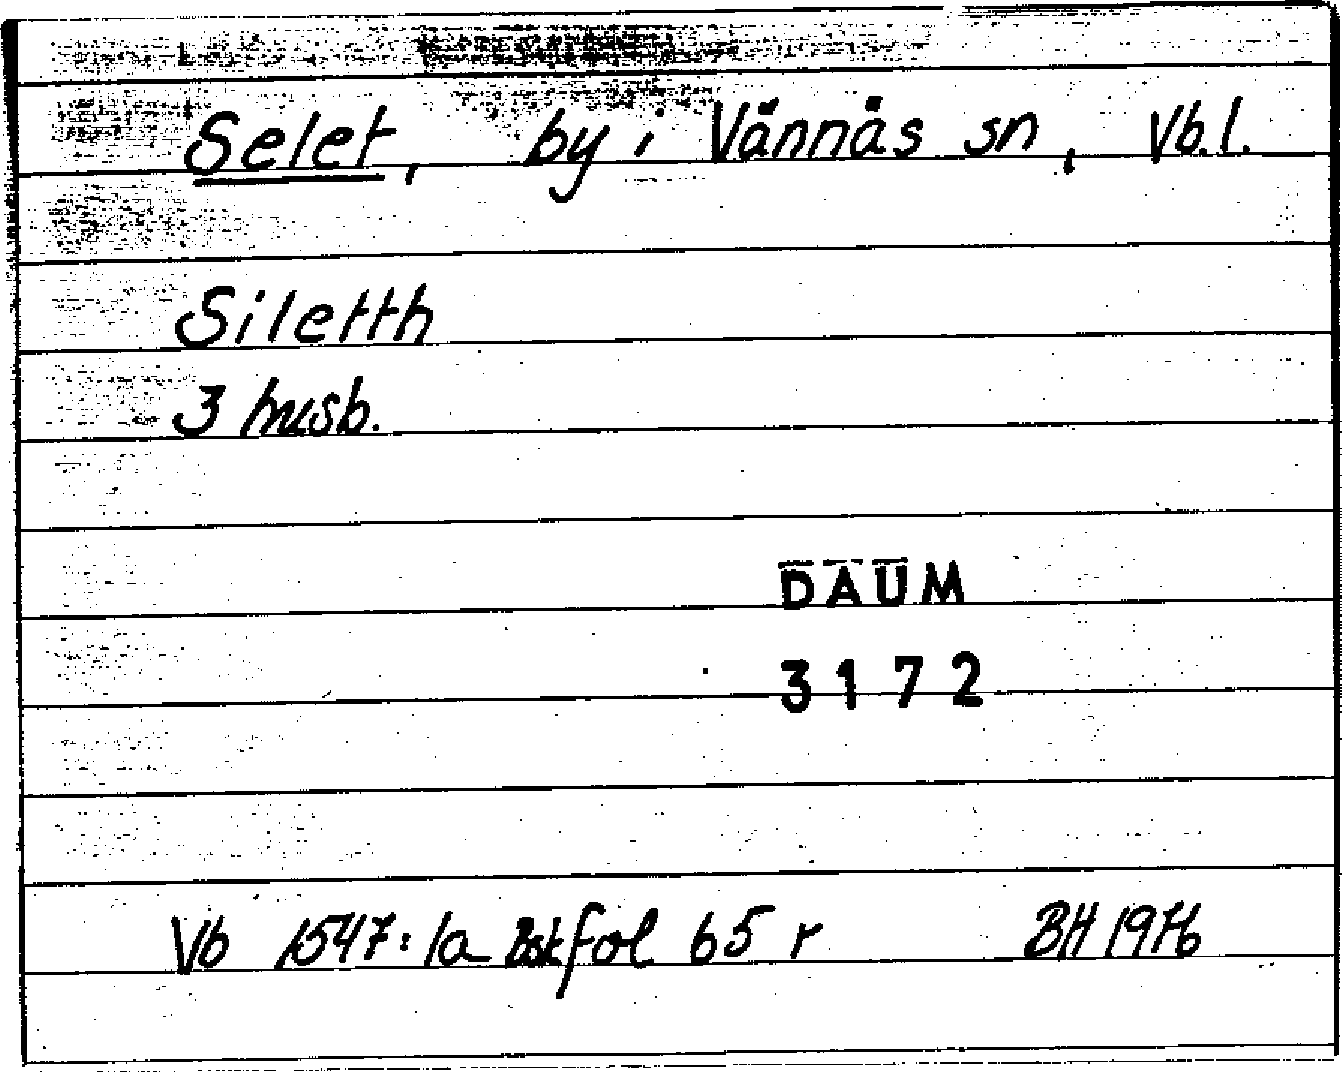 Selet, by i Vännäs sn, Vb.l.
Siletth
3 husb.
DAUM
3172
Vb 1547:1a Bskfol 65 r BH 1976